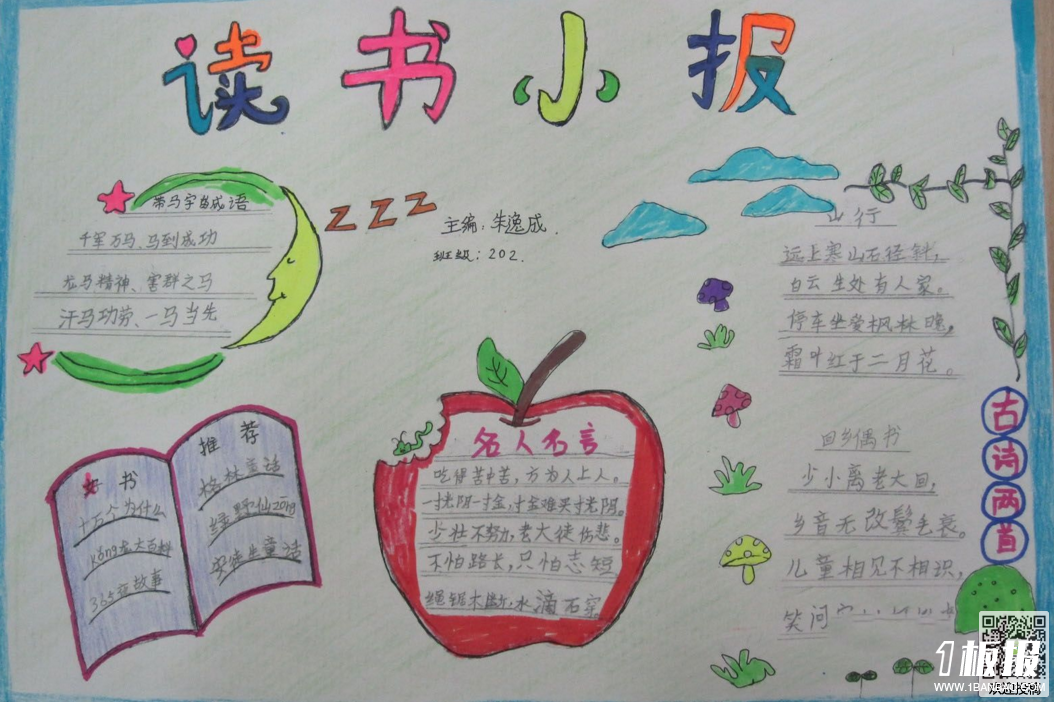 读书小报
带马字的成语
千军万马、马到成功
龙马精神、害群之马
汗马功劳、一马当先
ZZZ
主编：朱逸成.
班级：202.
山行
远上寒山石径斜，
白云生处有人家。
停车坐爱枫林晚，
霜叶红于二月花。
古诗两首
回乡偶书
少小离老大回，
乡音无改鬓毛衰。
儿童相见不相识，
笑问
名人名言
吃得苦中苦，方为人上人。
一寸光阴一寸金，寸金难买寸光阴。
少壮不努力，老大徒伤悲。
不怕路长，只怕志短
绳锯木断，水滴石穿
好书
十万个为什么
kǒng龙大百科
365夜故事
推荐
格林童话
绿野仙zōng
安徒生童话
1板报
WWW.1BANBAO.COM
欢迎投稿